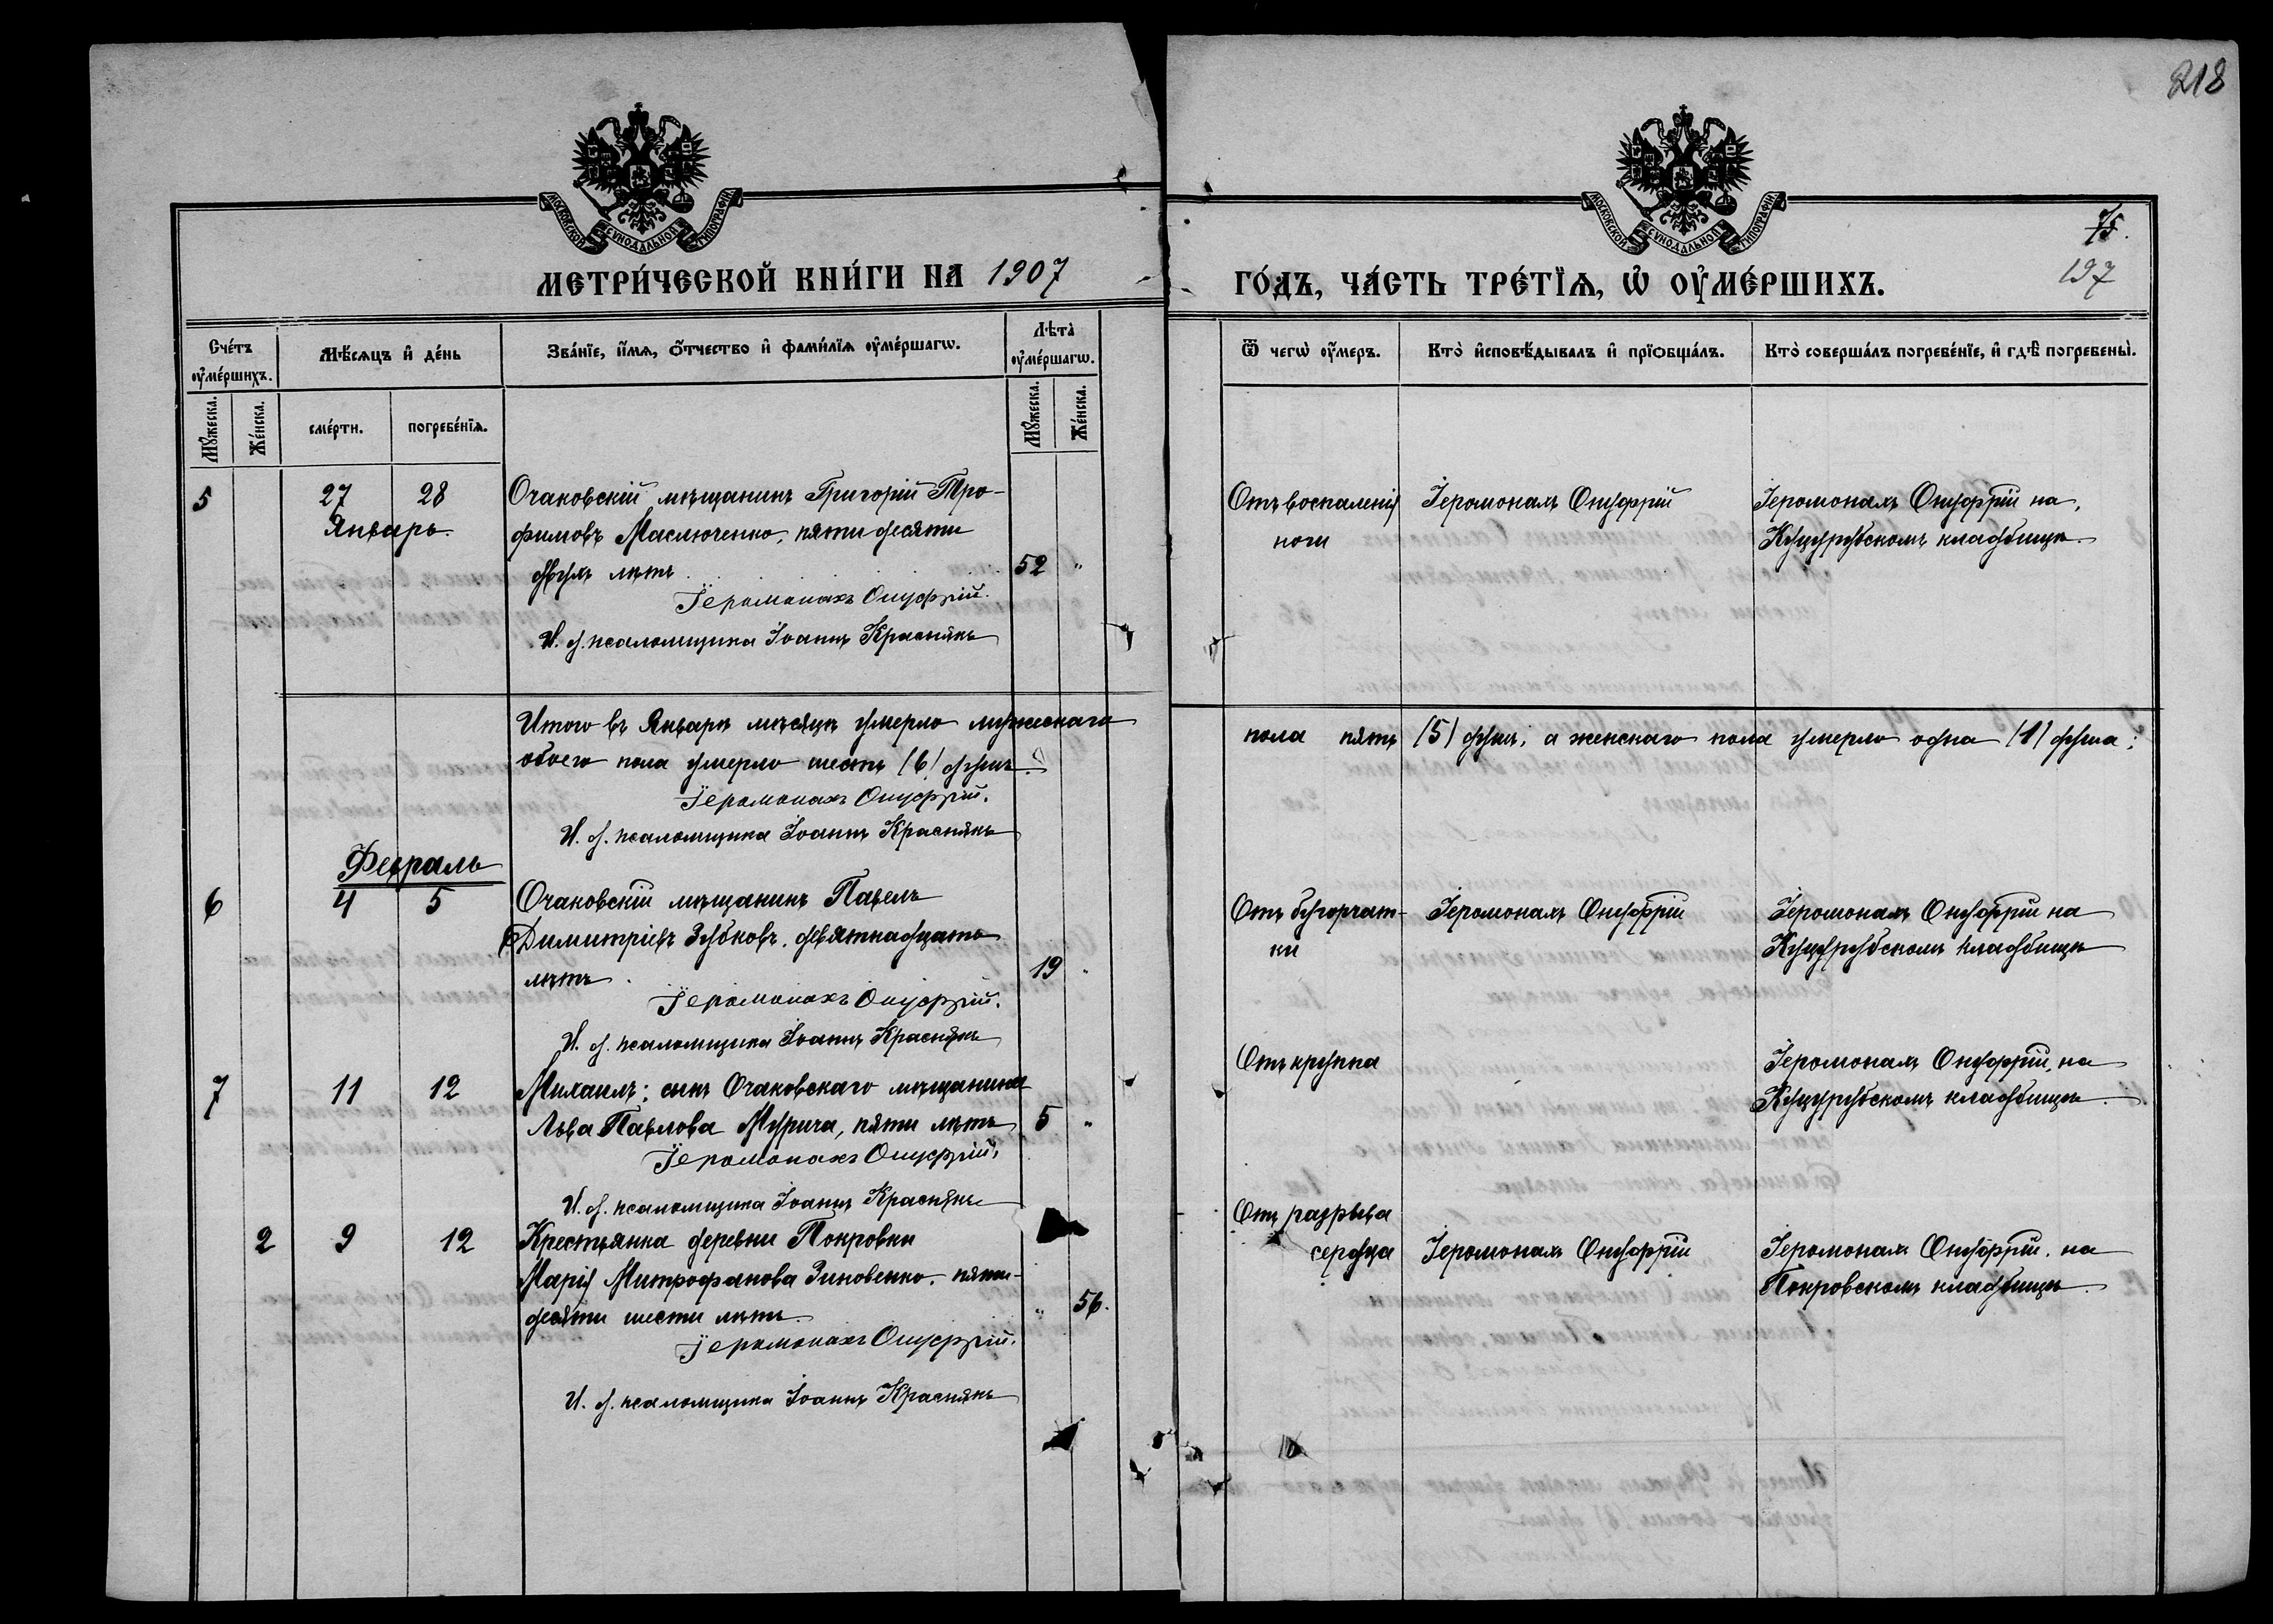 218
МОСКОВСКОЙ СУНОДАЛЬНОЙ ТИПОГРАФІИ
МОСКОВСКОЙ СУНОДАЛЬНОЙ ТИПОГРАФІИ
75.
197
МЕТРИ́ЧЕСКОЙ КНИ́ГИ НА 1907
ГО́ДЪ, ЧА́СТЬ ТРЕ́ТЇѦ, Ѡ҆ ОУ҆МЕ́РШИХЪ.
Сче́тъ оу҆ме́ршихъ.
Мѣ́сѧцъ и҆ де́нь
Зва́нїе, и҆́мѧ, ѻ҆́тчество и҆ фами́лїѧ оу҆ме́ршагѡ.
Лѣ́та̀ оу҆ме́ршагѡ.
Ѿ чегѡ̀ оу҆́меръ.
Кто̀ и҆сповѣ́дывалъ и҆ прїѻбща́лъ.
Кто̀ соверша́лъ погребе́нїе, и҆ гдѣ̀ погребены̀.
Мꙋ́жеска.
Же́нска.
сме́рти.
погребе́нїѧ.
Мꙋ́жеска.
Же́нска.
5 27 28 Очаковскій мѣщанинъ Григорій Тро-
Январь. фимовъ Маслюченко, пятидесяти
двухъ лѣтъ. 52 "
Іеромонахъ Онуфрій.
И. д. псаломщика Іоаннъ Краснякъ
Отъ воспаленія
ноги
Іеромонахъ Онуфрій
Іеромонахъ Онуфрій на
Куцурубскомъ кладбищѣ.
Итого въ Январѣ мѣсяцѣ умерло мужескаго
пола пять (5) душъ, а женскаго пола умерло одна (1) душа;
обоего пола умерло шесть (6) душъ.
Іеромонахъ Онуфрій.
И. д. псаломщика Іоаннъ Краснякъ
Февраль
6 4 5 Очаковскій мѣщанинъ Павелъ
Димитріевъ Зубковъ, девятнадцать
лѣтъ. 19 "
Іеромонахъ Онуфрій.
И. д. псаломщика Іоаннъ Краснякъ
Отъ бугорчат-
ки
Іеромонахъ Онуфрій
Іеромонахъ Онуфрій на
Куцурубскомъ кладбищѣ
7 11 12 Михаилъ; сынъ Очаковскаго мѣщанина
Льва Павлова Мурича, пяти лѣтъ 5 "
Іеромонахъ Онуфрій.
И. д. псаломщика Іоаннъ Краснякъ
Отъ крупа
Іеромонахъ Онуфрій, на
Куцурубскомъ кладбищѣ.
2 9 12 Крестьянка деревни Покровки
Марія Митрофанова Зиновенко, пяти-
десяти шести лѣтъ. " 56.
Іеромонахъ Онуфрій.
И. д. псаломщика Іоаннъ Краснякъ
Отъ разрыва
сердца
Іеромонахъ Онуфрій
Іеромонахъ Онуфрій, на
Покровскомъ кладбищѣ.